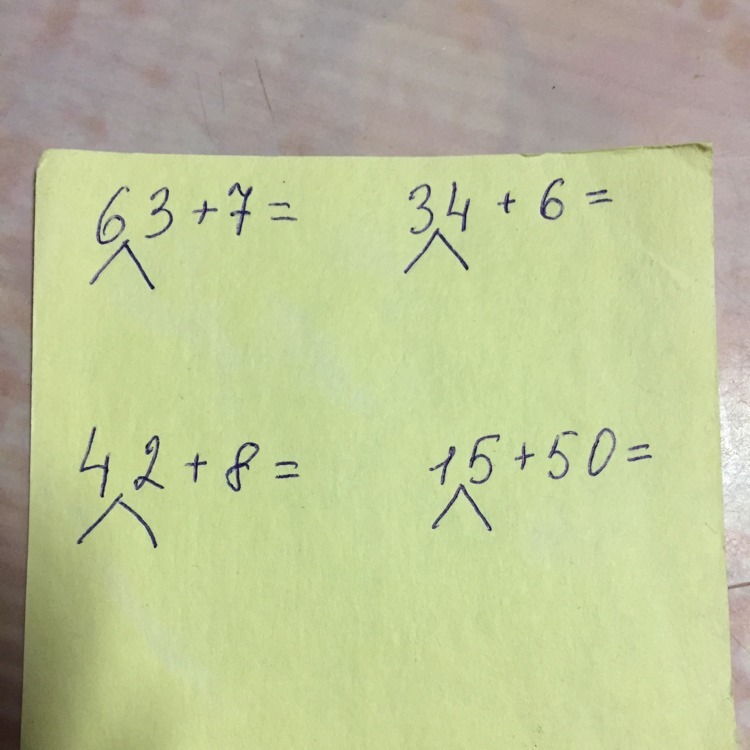 63+7= 34+6=
42+8= 15+50=